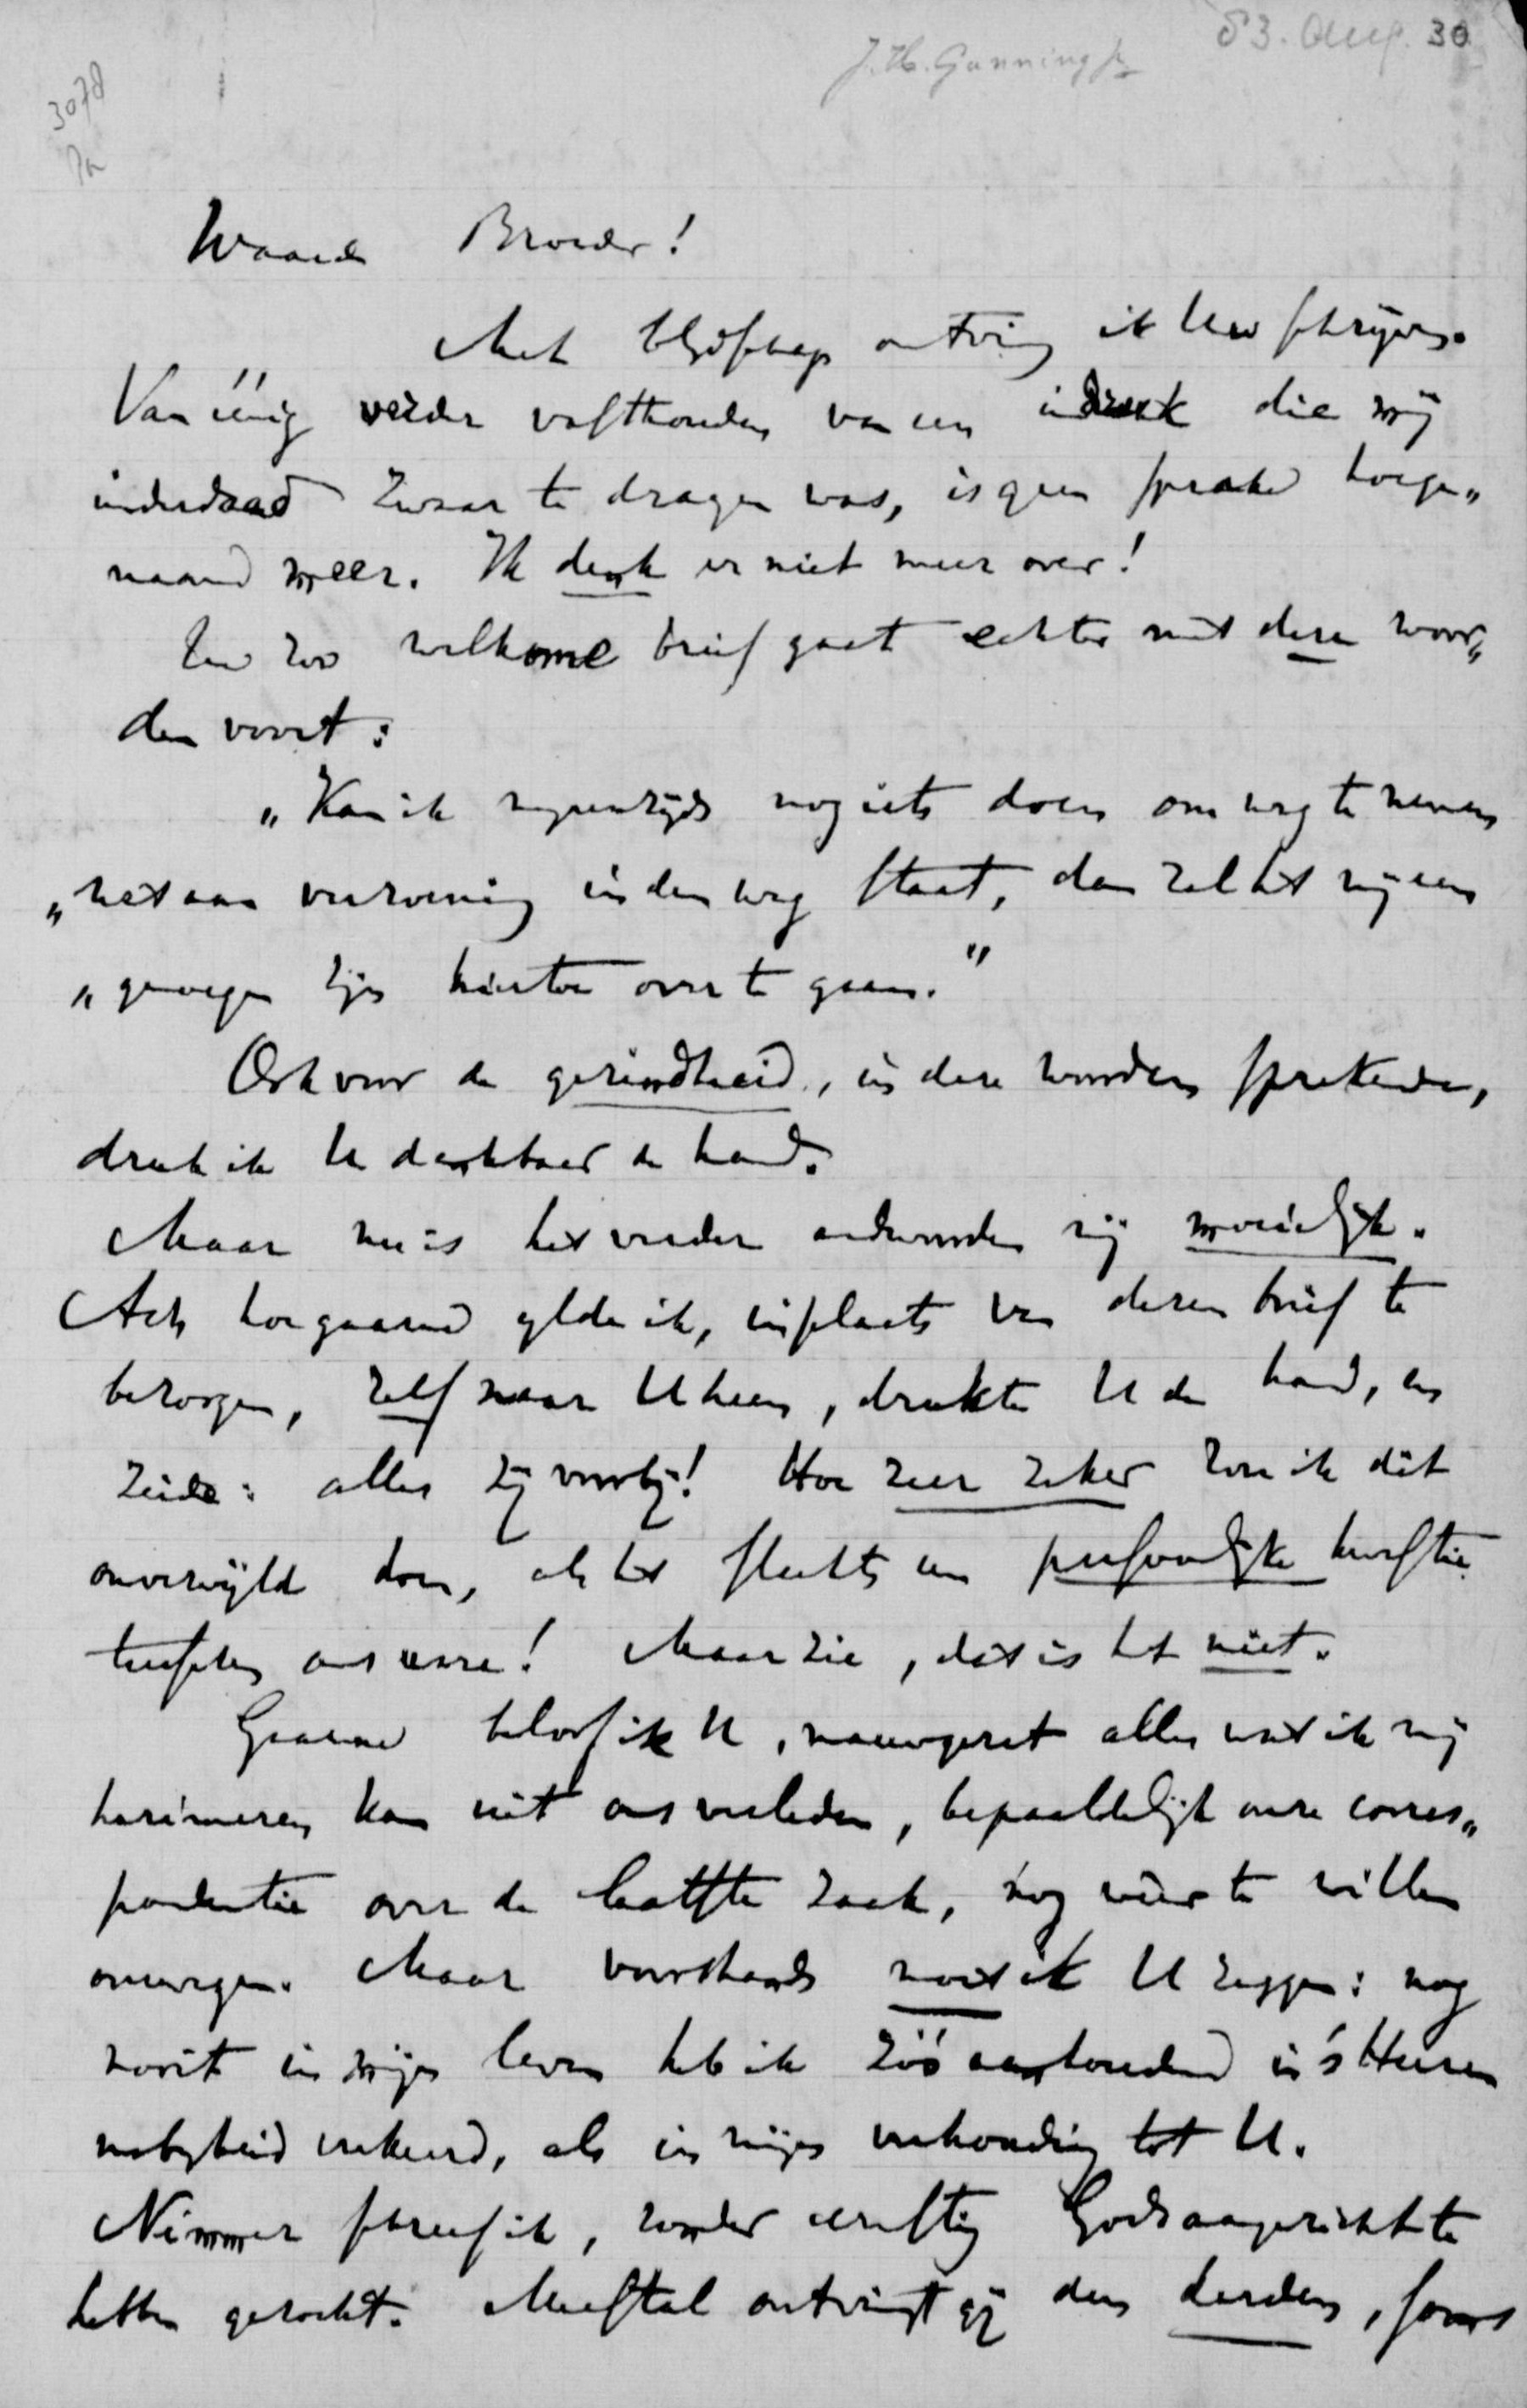 83. Aug. 30
J.H. Gunning Jr
3078
Waarde Broeder!
Met blijdschap ontving ik Uw schrijven.
Van éénig verder vasthouden van een indruk die mij
inderdaad zwaar te dragen was, is geen sprake hoege„
naamd meer. Ik denk er niet meer over!
Uw zoo welkome brief gaat echter met deze woor„
den voort:
„Kan ik mijnerzijds nog iets doen om weg te nemen
„wat aan verzoening in den weg staat, dan zal het mij een
„genoegen zijn hiertoe over te gaan."
Ook voor de gezindheid, in deze woorden sprekende,
druk ik U dankbaar de hand.
Maar nu is het verder antwoorden mij moeielijk.
Ach hoe gaarne ijlde ik, in plaats van dezen brief te
bezorgen, zelf naar U heen, drukte U de hand, en
zeide: alles zij voorbij! Hoe zeer zeker zou ik dit
onverwijld doen, als het slechts een persoonlijke kwestie
tusschen ons ware! Maar zie, dat is het niet.
Gaarne beloof ik U, nauwgezet alles wat ik mij
herinneren kan uit ons verleden, bepaaldelijk onze corres„
pondentie over de laatste zaak, nóg weer te willen
overwegen. Maar voorshands moet ik U zeggen: nog
nooit in mijn leven heb ik zóó aanhoudend in 's Heeren
nabijheid verkeerd, als in mijn verhouding tot U.
Nimmer schreef ik, zonder ernstig Gods aangezicht te
hebben gezocht. Meestal ontvingt gij den derden, soms